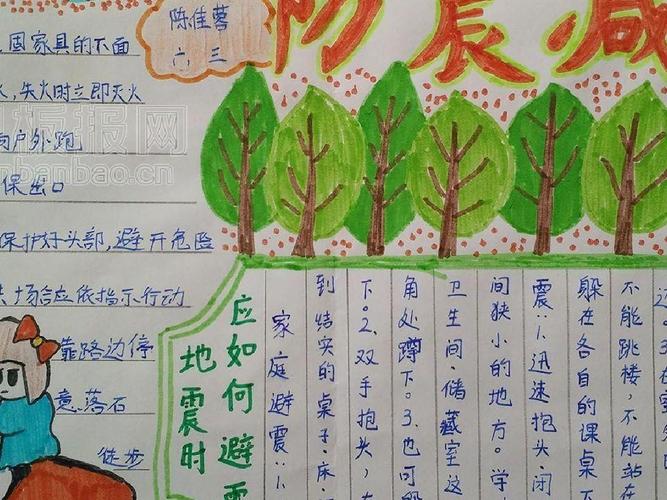 防震减
陈佳蓉
六、三
固家具的不面
失火时立即灭火
向户外跑
保出口
保护好头部,避开危险
场合应依指示行动
靠路边停
意、落石
徒步
板报网
banbao.cn
应如何避震
地震时
家庭避震:1.
到结实的桌子、床
下。2、双手抱头,在
角处蹲下。3.也可
卫生间、储藏室这
间狭小的地方。学
震:1.迅速抱头、闭
躲在各自的课桌下
不能跳楼,不能站在